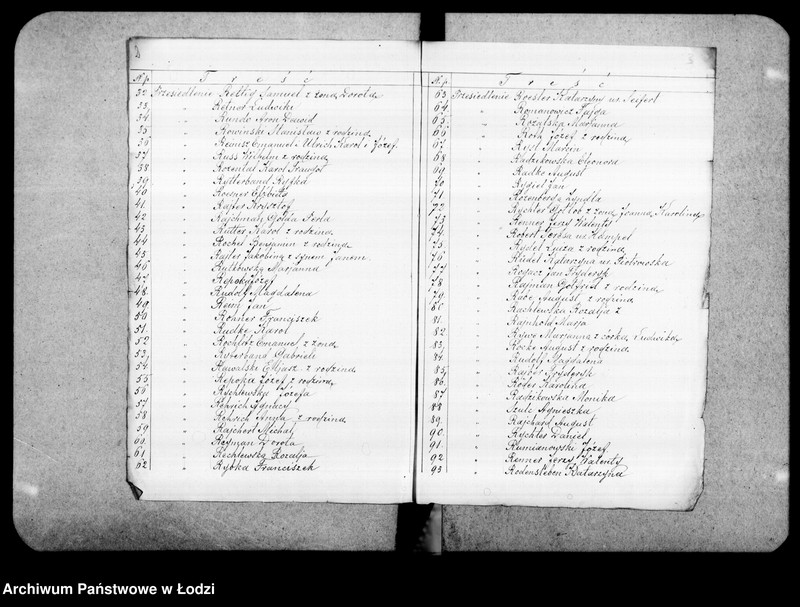 N.p. Treść
32 Przesiedlenie Rettig Samuel z żoną Dorotą
33 " Refner Ludwike
34 " Rundo Aron Dawid
35 " Rowiński Stanisław z rodziną
36 " Emanuel Ulrich Karol i Józef
37 " Russ Wilhelm z rodziną
38 " Rozental Karol
39 " Rytterband Ryfka
40 " Roisner
41 " Rajter Krysztof
42 " Rajchman Golda Perla
43 " Rutter Karol z rodziną
44 " Rochet Benjamin z rodziną
45 " Rajter Jakobina z synem Janem
46 " Rutkowska Marjanna
47 " Józef
48 " Rudolf Magdalena
49 " Reim Jan
50 " Rohner Franciszek
51 " Rudke Karol
52 " Rochlitz Emanuel z żoną
53 " Ryterband Gabriel
54 " Rawalski Eljasz z rodziną
55 " Repocka Józef z rodziną
56 " Rychlewska Józefa
57 " Rehrich Ignacy
58 " Rehrich Anna z rodziną
59 " Rajchert Michał
60 " Rejman Dorota
61 " Rechlewska Rozalja
62 " Rybka Franciszek
N.p. Treść
63 Przesiedlenie Roesler Katarzyna ur. Seifert
64 " Romanowicz Fajga
65 " Rozalska Marjanna
66 " Roth Józef z rodziną
67 " Ryst Marcin
68 " Radzikowska Eleonora
69 " Radke August
70 " Rydel Jan
71 " Rozenberg Lyndla
72 " Rychter Gotlob z żoną Joanną Karoliną
73 " Renner Jerzy Walenty
74 " Robert Tereska ur. Hampel
75 " Rydel Luiza z rodziną
76 " Riedel Katarzyna ur. Piotrowska
77 " Rogasz Jan Fryderyk
78 " Rajman Gotfryd z rodziną
79 " Rabe August z rodziną
80 " Rachlewska Rozalja z
81 " Rajnhold Marja
82 " Marjanna z córką Ludwiką
83 " Rocke August z rodziną
84 " Rudolf Magdalena
85 " Rajber Fryderyk
86 " Rofer Karolina
87 " Radzikowska Monika
88 " Szulc Agnieszka
89 " Rajchard August
90 " Rychter Daniel
91 " Rumianowski Józef
92 " Renner Jerzy Walenty
93 " Rodensleben Katarzyna
Archiwum Państwowe w Łodzi